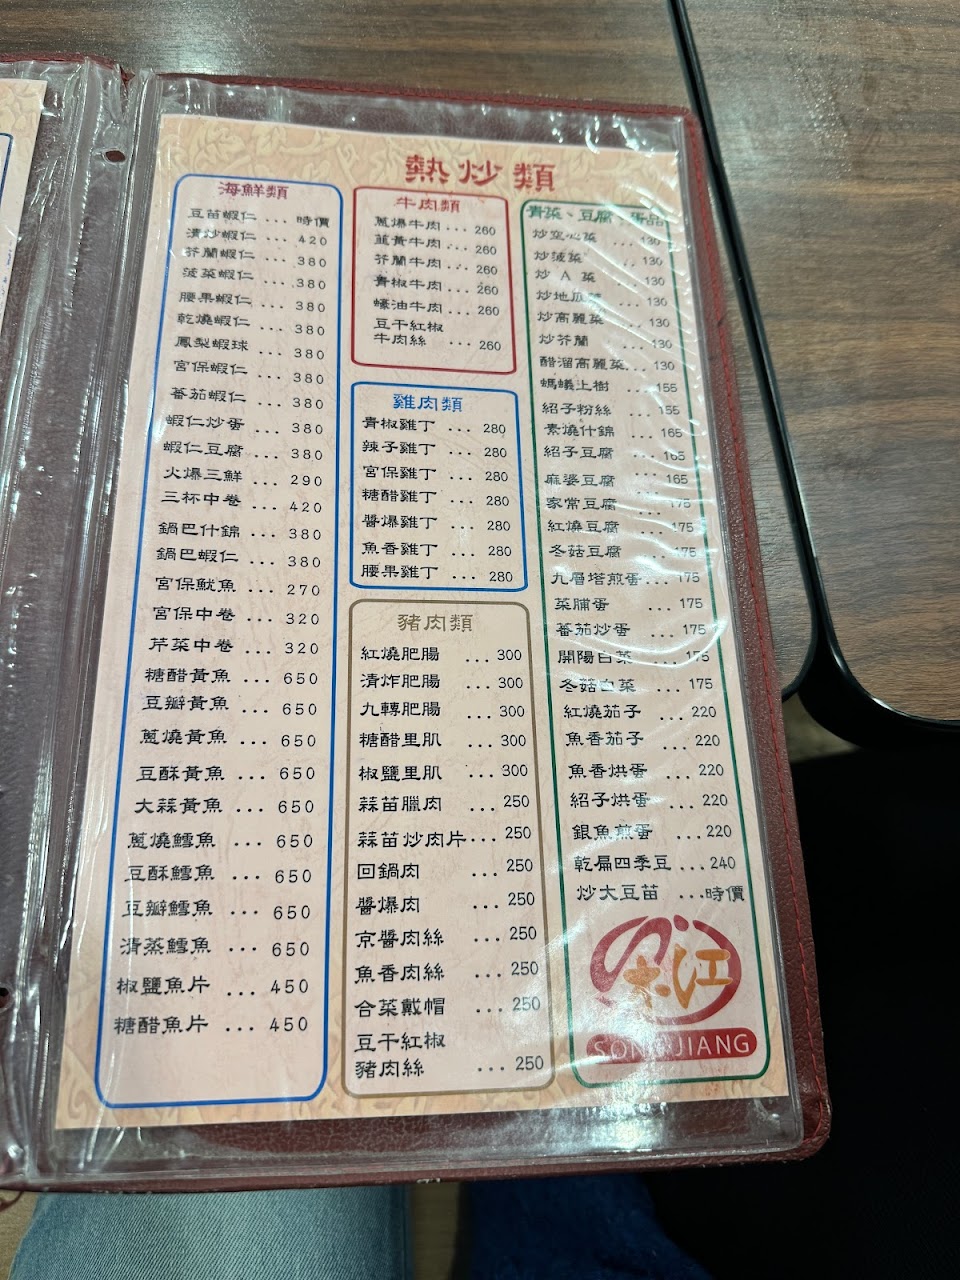 熱炒類
海鮮類
豆苗蝦仁 ... 時價
清炒蝦仁 ... 420
芥蘭蝦仁 ... 380
菠菜蝦仁 ... 380
腰果蝦仁 ... 380
乾燒蝦仁 ... 380
鳳梨蝦球 ... 380
宮保蝦仁 ... 380
蕃茄蝦仁 ... 380
蝦仁炒蛋 ... 380
蝦仁豆腐 ... 380
火爆三鮮 ... 290
三杯中卷 ... 420
鍋巴什錦 ... 380
鍋巴蝦仁 ... 380
宮保魷魚 ... 270
宮保中卷 ... 320
芹菜中卷 ... 320
糖醋黃魚 ... 650
豆瓣黃魚 ... 650
蔥燒黃魚 ... 650
豆酥黃魚 ... 650
大蒜黃魚 ... 650
蔥燒鱈魚 ... 650
豆酥鱈魚 ... 650
豆瓣鱈魚 ... 650
清蒸鱈魚 ... 650
椒鹽魚片 ... 450
糖醋魚片 ... 450
牛肉類
蔥爆牛肉 ... 260
韮黃牛肉 ... 260
芥蘭牛肉 ... 260
青椒牛肉 ... 260
蠔油牛肉 ... 260
豆干紅椒
牛肉絲 ... 260
雞肉類
青椒雞丁 ... 280
辣子雞丁 ... 280
宮保雞丁 ... 280
糖醋雞丁 ... 280
醬爆雞丁 ... 280
魚香雞丁 ... 280
腰果雞丁 ... 280
豬肉類
紅燒肥腸 ... 300
清炸肥腸 ... 300
九轉肥腸 ... 300
糖醋里肌 ... 300
椒鹽里肌 ... 300
蒜苗臘肉 ... 250
蒜苗炒肉片 ... 250
回鍋肉 ... 250
醬爆肉 ... 250
京醬肉絲 ... 250
魚香肉絲 ... 250
合菜戴帽 ... 250
豆干紅椒
豬肉絲 ... 250
青菜、豆腐、蛋品
炒空心菜 ... 130
炒菠菜 ... 130
炒 A 菜 ... 130
炒地瓜葉 ... 130
炒高麗菜 ... 130
炒芥蘭 ... 130
醋溜高麗菜... 130
螞蟻上樹 ... 155
紹子粉絲 ... 155
素燒什錦 ... 165
紹子豆腐 ... 165
麻婆豆腐 ... 165
家常豆腐 ... 175
紅燒豆腐 ... 175
冬菇豆腐 ... 175
九層塔煎蛋... 175
菜脯蛋 ... 175
蕃茄炒蛋 ... 175
開陽白菜 ... 175
冬菇白菜 ... 175
紅燒茄子 ... 220
魚香茄子 ... 220
魚香烘蛋 ... 220
紹子烘蛋 ... 220
銀魚煎蛋 ... 220
乾扁四季豆 ... 240
炒大豆苗 ... 時價
松江
SONGJIANG